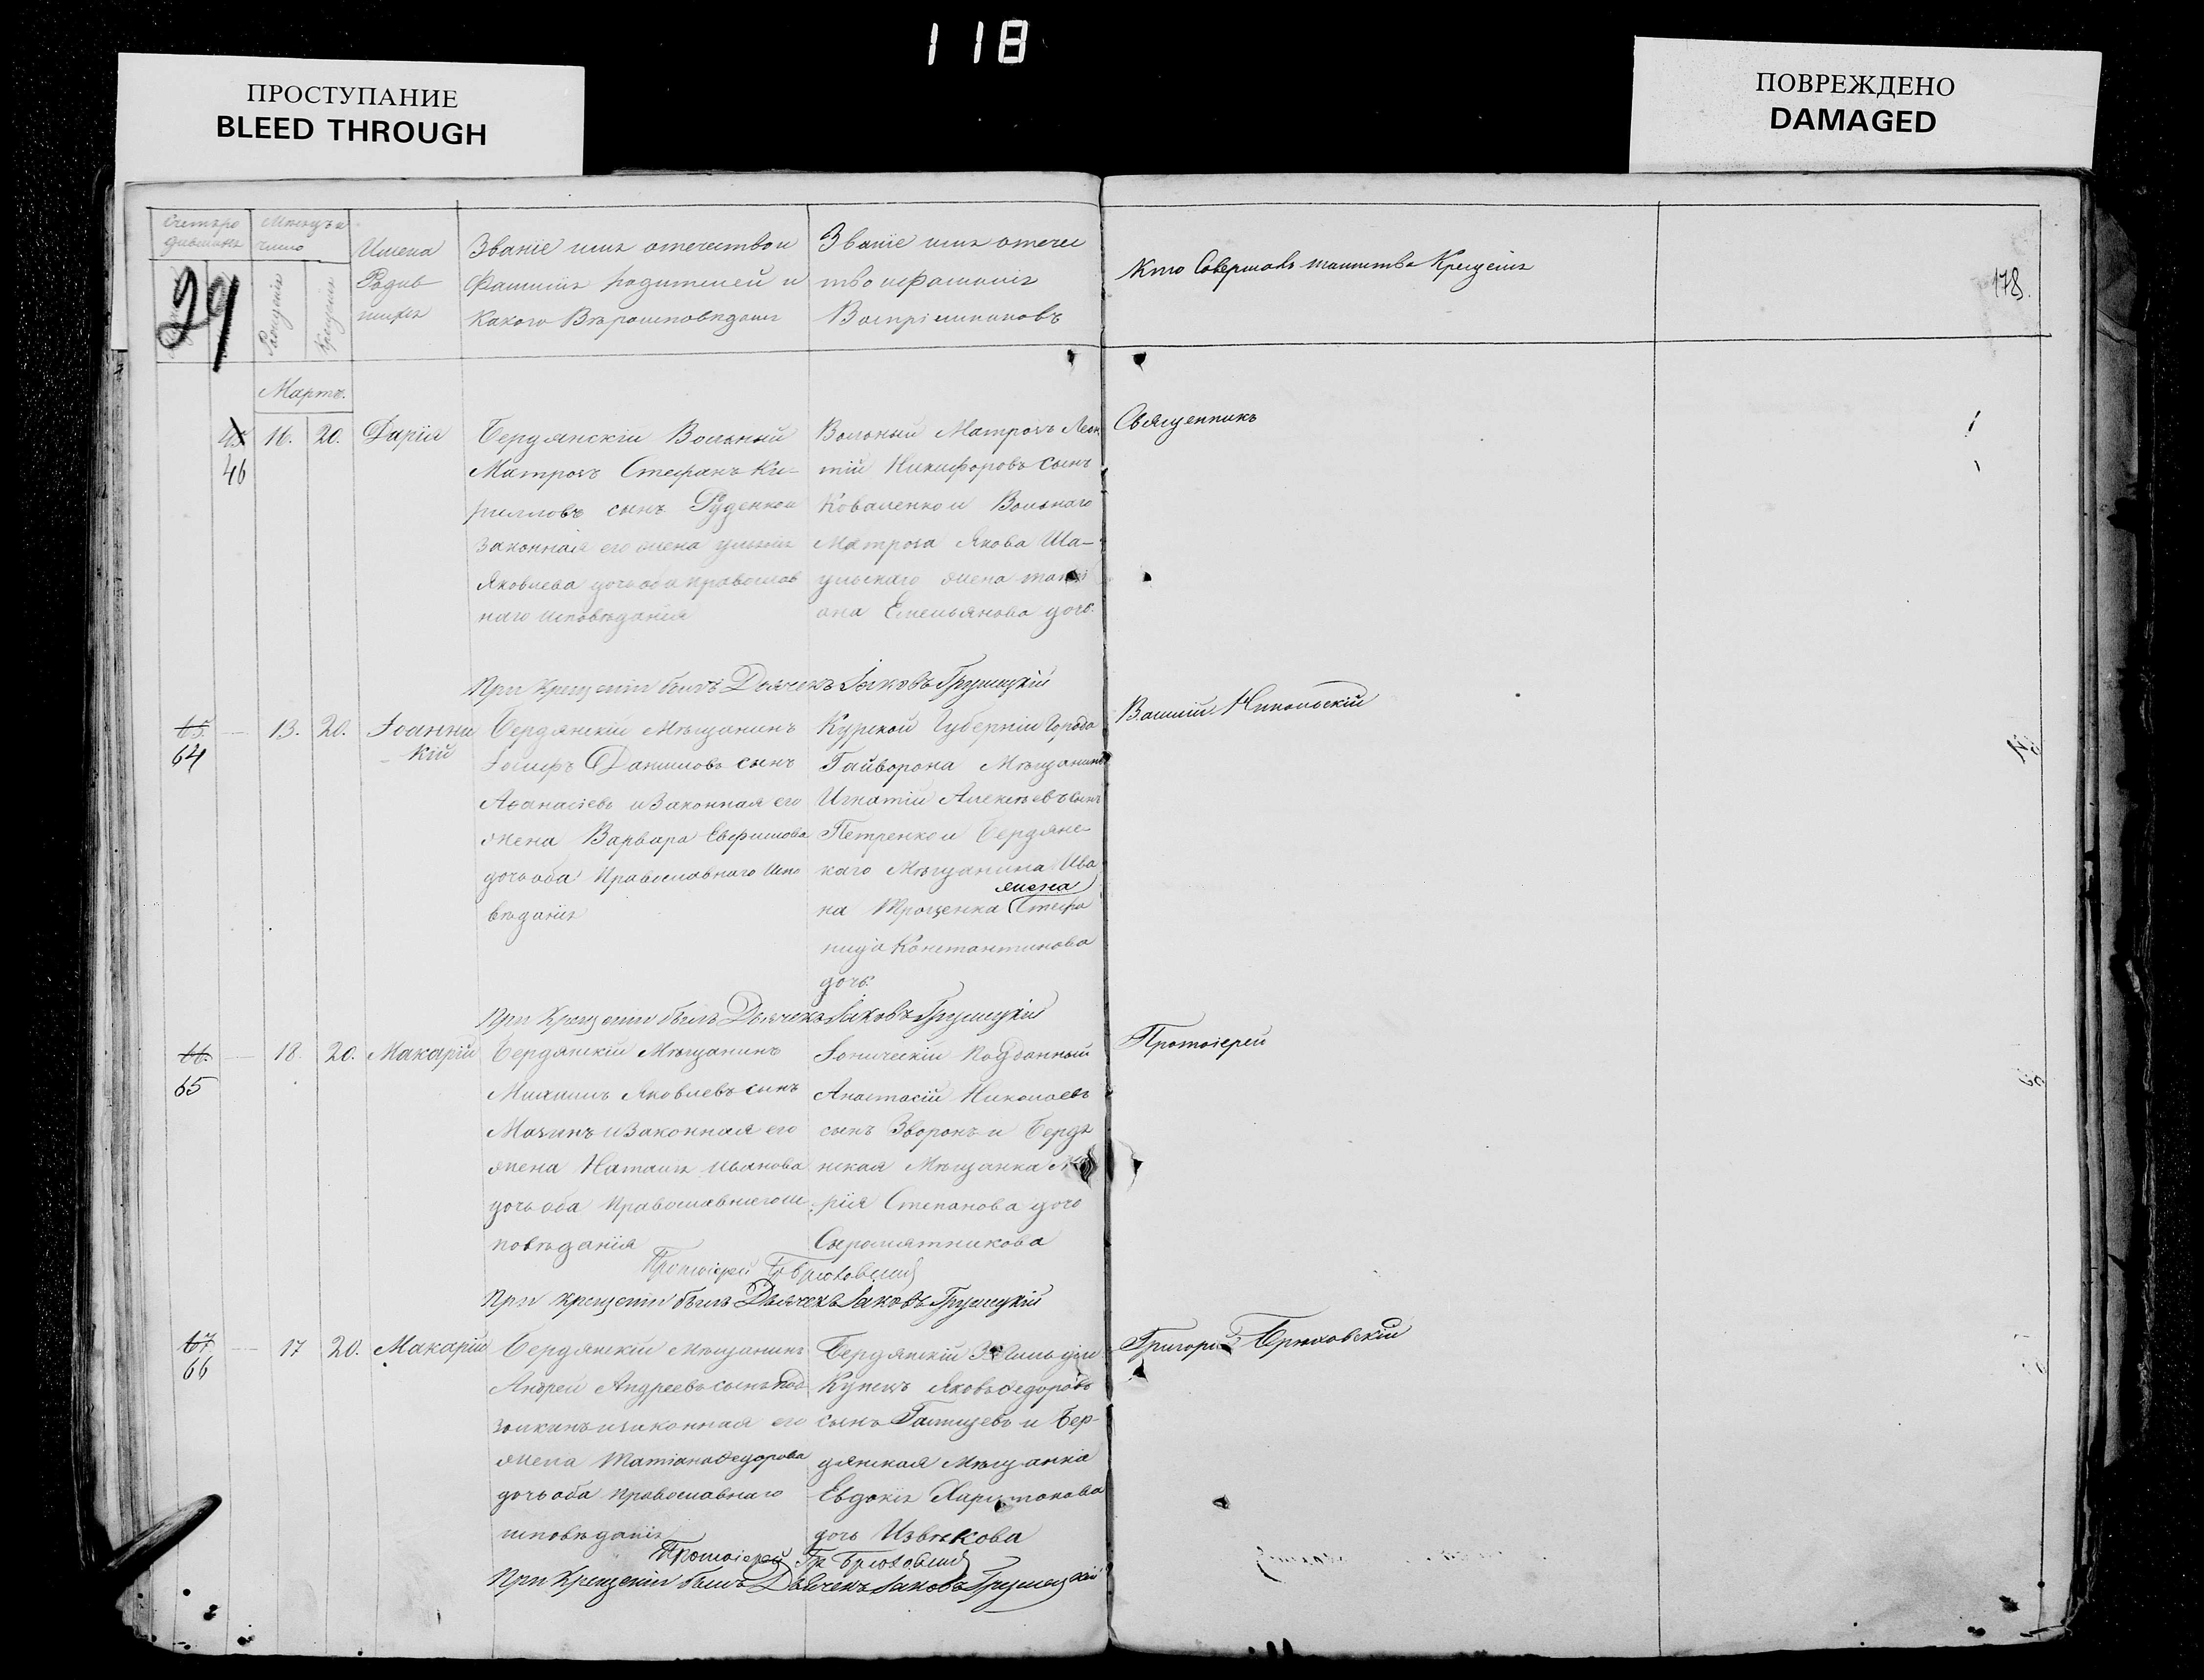 118
ПРОСТУПАНИЕ
BLEED THROUGH
ПОВРЕЖДЕНО
DAMAGED
Счетъ ро
дившихъ
Мѣсяцъ и
число
Рожденія
Крещенія
Имена
Родив
шихся
Званіе имя отечество и
Фамилія родителей и
Какого Вѣроисповѣданія
Званіе имя отечес
тво и фамилія
Воспріемниковъ
Кто Совершалъ таинство Крещенія
178.
29
Мартъ.
45
46
16.
20.
Дарія
Бердянскій Вольный
Матрозъ Стефанъ Ки-
рилловъ сынъ Руденко и
Законная его жена
Яковлева дочь оба православ
наго исповѣданія
Вольный Матрозъ Леон
тій Никифоровъ сынъ
Коваленко и Вольнаго
Матроза Якова Ша-
ульскаго жена
Емельянова дочь.
Священникъ
При крещеніи былъ Дьячекъ Іаковъ Грушецкій
65.
64
13.
20.
Іоанни
кій
Бердянскій Мѣщанинъ
Іосифъ Даниловъ сынъ
Аѳанасіевъ и Законная его
жена Варвара Евфимова
дочь оба Православнаго Испо
вѣданія
Курской Губерніи Города
Гайворона Мѣщанинъ
Игнатій Алексѣевъ сынъ
Петренко и Бердянс-
каго Мѣщанина Ива
жена
на Троценка Стефа
нида Константинова
дочь.
Василій Никольскій
При Крещеніи былъ Дьячекъ Іаковъ Грушецкій
66.
65
18.
20.
Макарій
Бердянскій Мѣщанинъ
Михаилъ Яковлевъ сынъ
Мазинъ и Законная его
жена Наталія Иванова
дочь оба Православнаго ис
повѣданія
Іоническій Подданный
Анастасій Николаевъ
сынъ Зворонъ и Бердя
нская Мѣщанка
рія Степанова дочь
Сыромятникова
Протоіерей
Протоіерей Гр Брюховскій
При крещеніи былъ Дьячекъ Іаковъ Грушецкій
67
66
17
20.
Макарій
Бердянскій Мѣщанинъ
Андрей Андреевъ сынъ Под
золкинъ и законная его
жена Татіана Федорова
дочь оба православнаго
исповѣданія
Бердянскій 3й Гильдіи
Купецъ Яковъ Федоровъ
сынъ Галищевъ и Бер-
дянская Мѣщанка
Евдокія Харитонова
дочь Извѣкова
Григорій Брюховскій
Протоіерей Гр Брюховскій
При Крещеніи былъ Дьячекъ Іаковъ Грушецкій